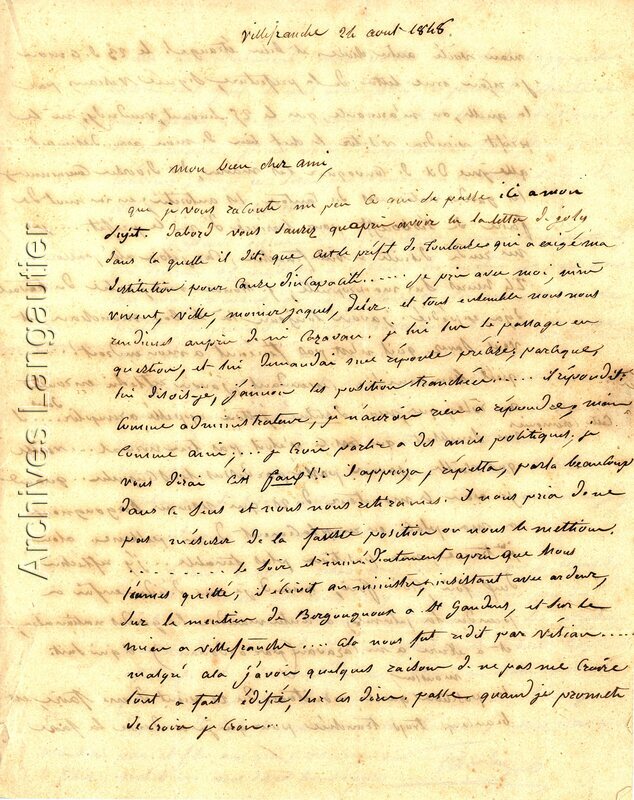 Villefranche 24 aout 1848.
mon bien cher ami,
que je vous raconte un peu ce qui se passe ici a mon
sujet. dabord vous saurez qu'après avoir lu la lettre de joly
dans la quelle il dit: que cest le préfet de Toulouse qui a exigé ma
destitution pour cause d'incapacité..... je pris avec moi,
vivent, ville, monier jaques, et tous ensemble nous nous
rendimes auprès de mr Cazavan. je lui lus le passage en
question, et lui demandai une réponse précise, parceque,
lui disois-je, j'aimois les position tranchées..... il répondit:
comme administrateur, je n'aurois rien a répondre, mais
comme ami,... je crois parler a des amis politiques, je
vous dirai c'est faux!!! il appuya, répetta, parla beaucoup
dans ce sens et nous nous retirames. il nous pria de ne
pas mésuser de la fausse position ou nous le mettions.
......... le soir et immédiatement après que nous
l'eumes quitté, il écrivit au ministre, insistant avec ardeur,
sur le maintien de Bergougnoux a St Gaudens, et sur le
mien a villefranche.... cela nous fut redit par Vésian.....
malgré cela j'avois quelques raisons de ne pas me croire
tout a fait édifié, sur ces dires. passe quand je promets
de croire je crois...
Archives Langautier